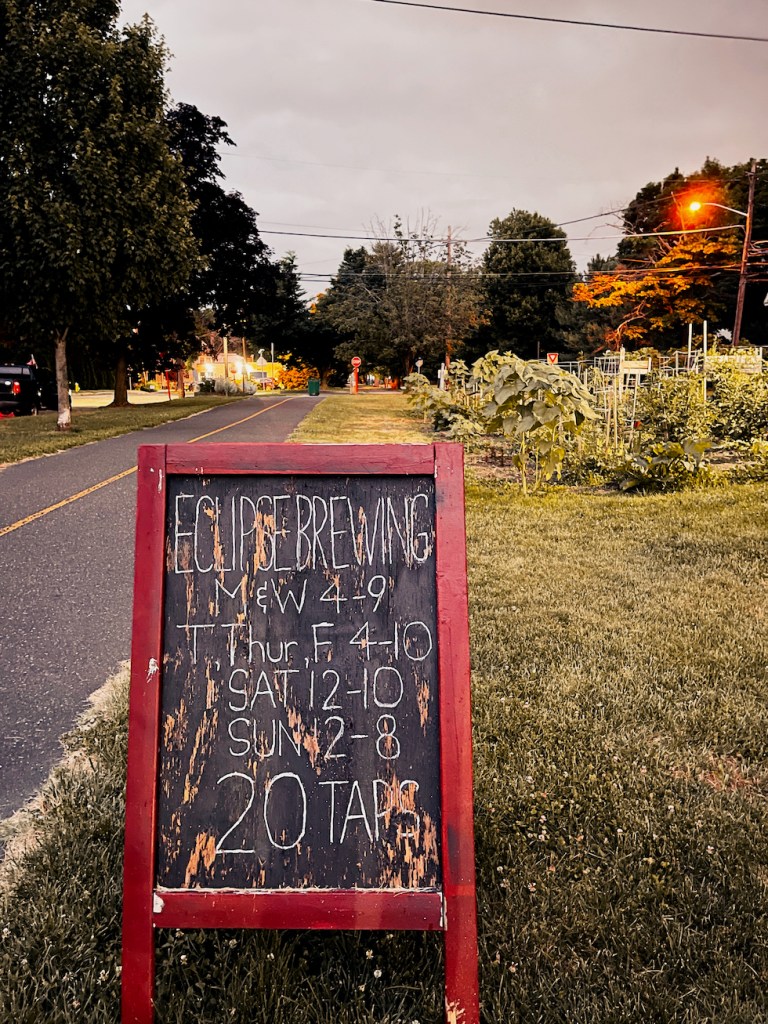 ECLIPSE BREWING
M & W 4-9
T, Thur, F 4-10
SAT 12-10
SUN 12-8
20 TAPS